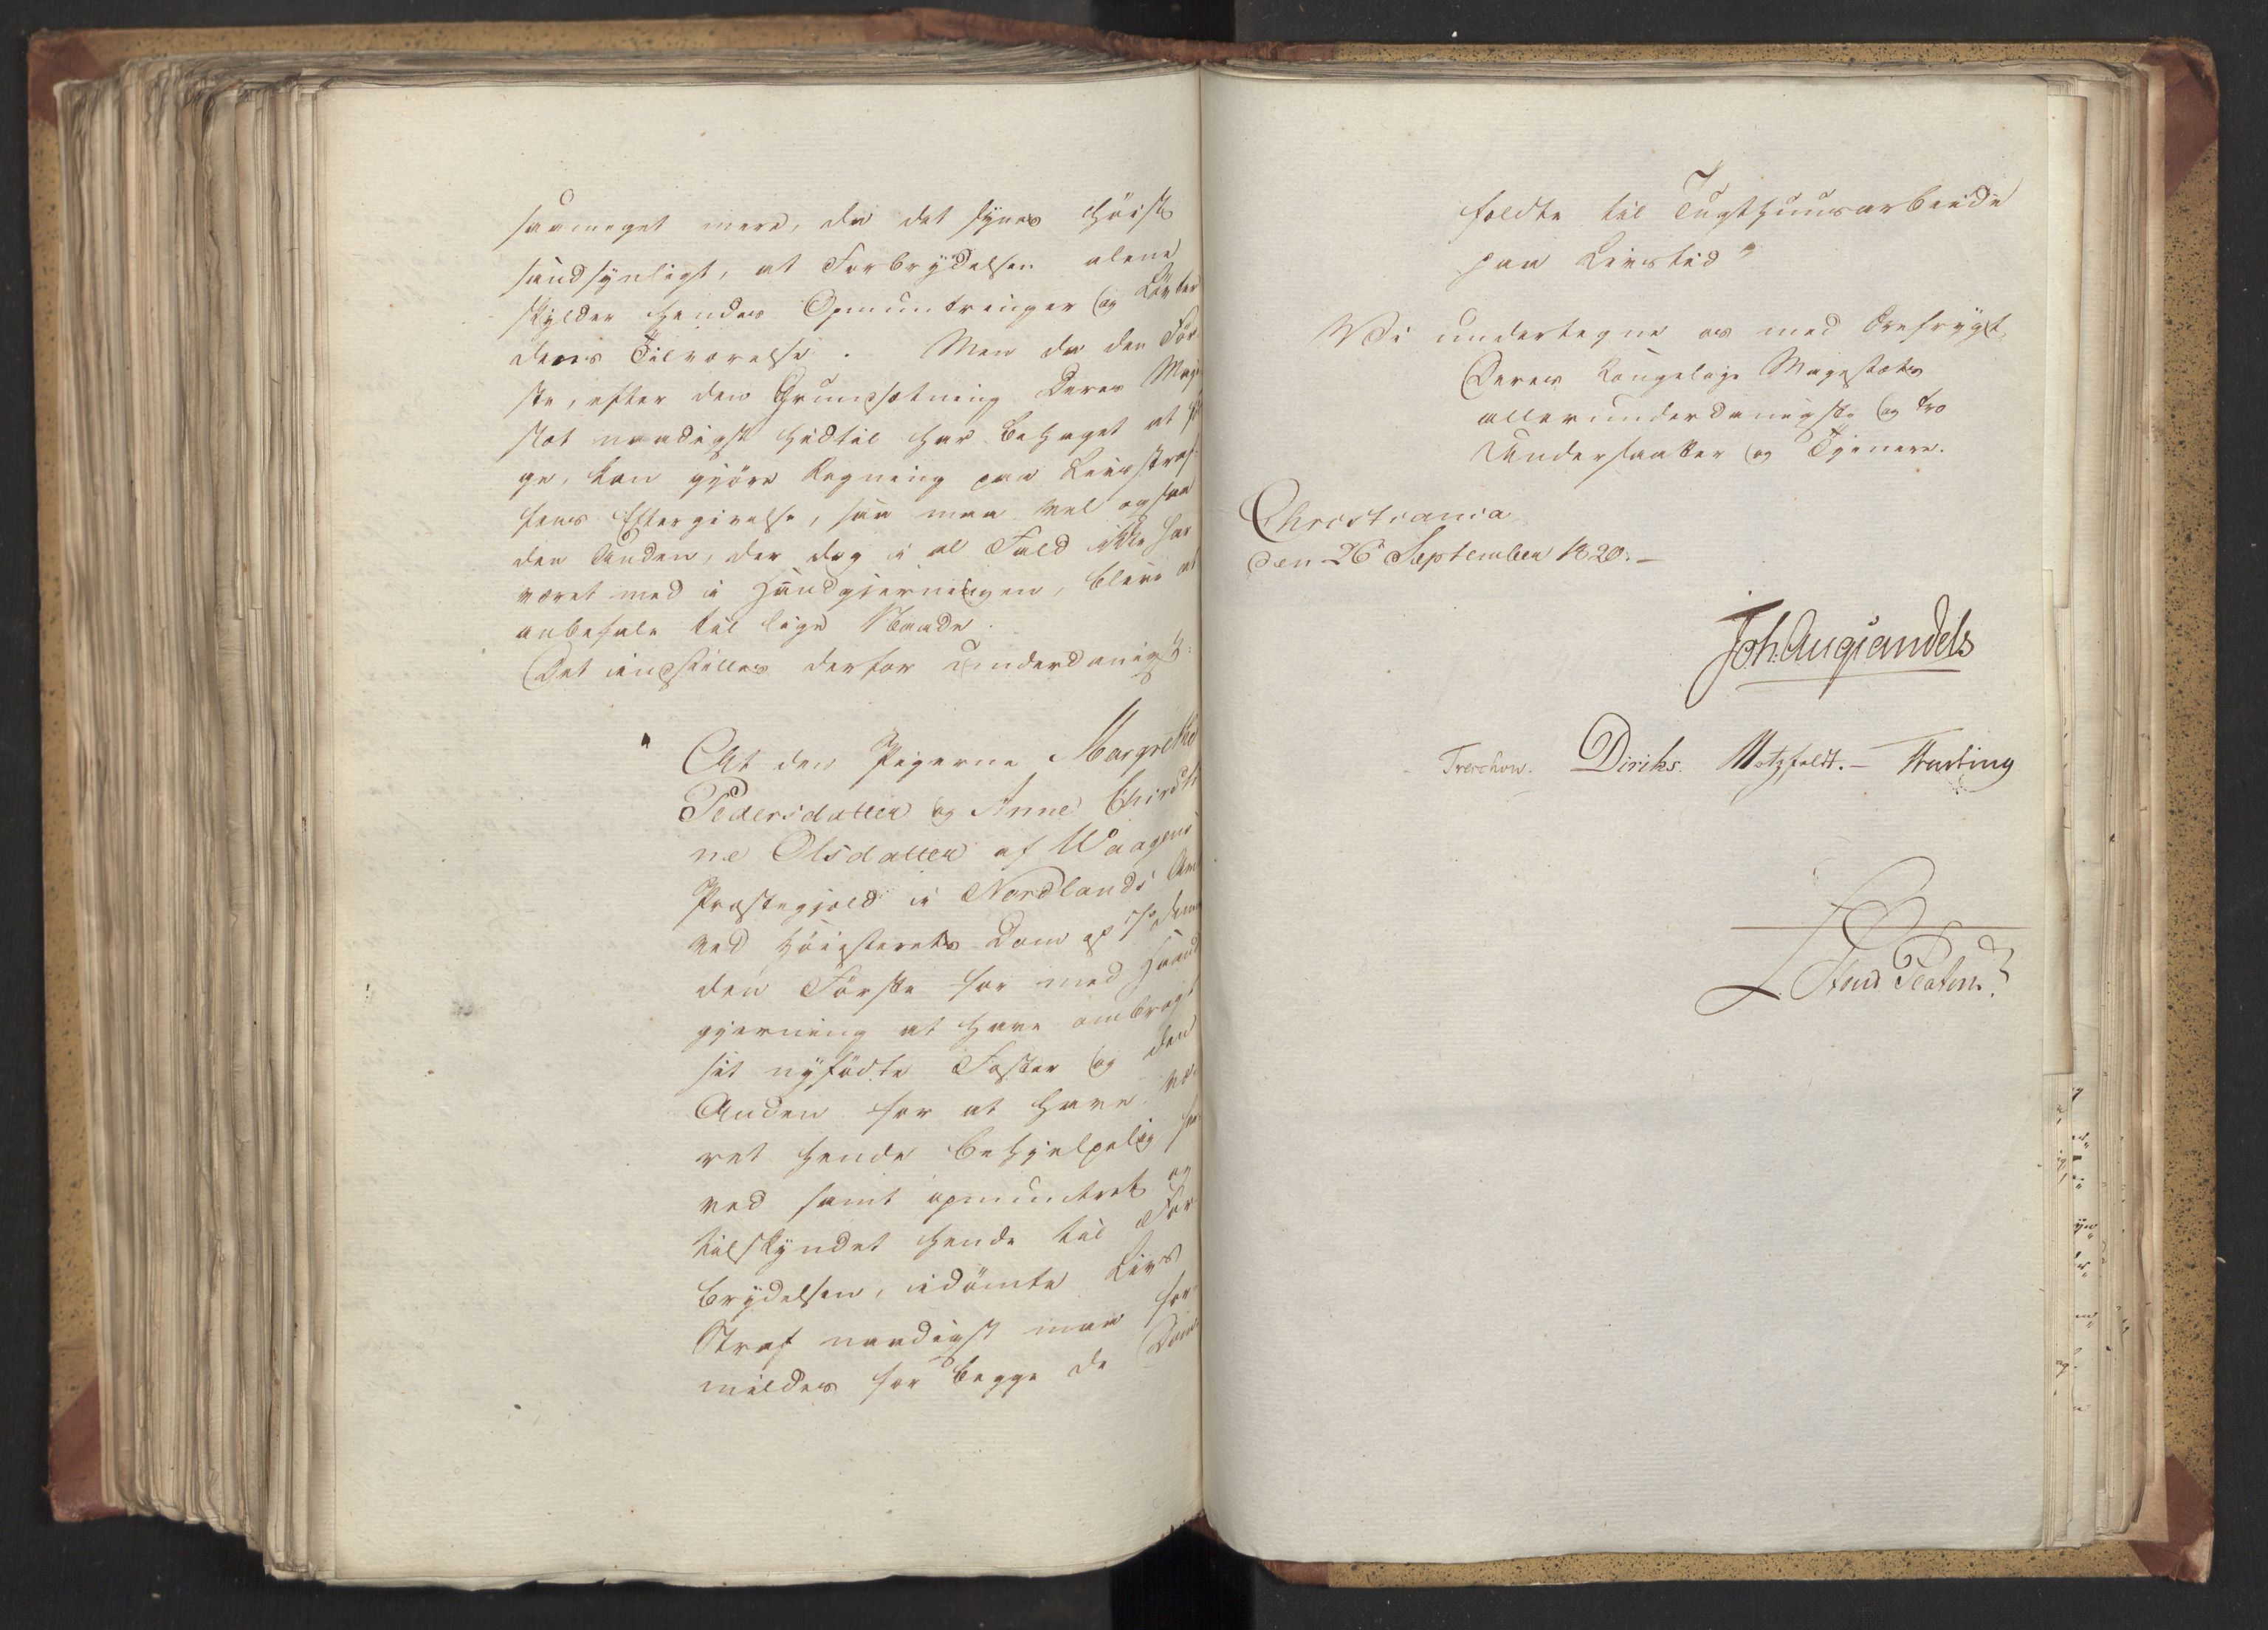 saameget mere, da det synes høist
sandsynligt, at Forbrydelsen alene
skylder hendes Opmuntringer og Løfter
dens Tilværelse. Men da den Før-
ste, efter den Grundsætning Deres Maje-
stæt naadigst hidtil har behaget at føl-
ge, kan gjøre Regning paa Livsstraf-
fens Eftergivelse, saa maa vel ogsaa
den Anden, der dog i al Fald ikke har
været med i Haandgjerningen, blive at
anbefale til lige Naade.
Det indstilles derfor underdanigst:
"At den Pigerne Margrethe
Pedersdatter og Anne Chirsti-
ne Olsdatter af Waagens
Præstegjæld i Nordlands Amt
ved Høiesterets Dom af
den Første for med Haand-
gjerning at have ombragt
sit nyfødte Foster og den
Anden for at have væ-
ret hende behjelpelig her-
ved samt opmuntret og
tilskyndet hende til For-
brydelsen, idømte Livs
Straf naadigst maa for-
mildes for begge de Dom-
fældte til Tugthuusarbeide
paa Livstid"
Vi undertegne os med Ærefrygt
Deres Kongelige Majestæts
allerunderdanigste og tro
Undersaatter og Tjenere.
Christiania
den 26 September 1820.-
Joh. Aug Sandels
Treschow. Diriks. Motzfeldt.- Fasting
L. Stoud Platou